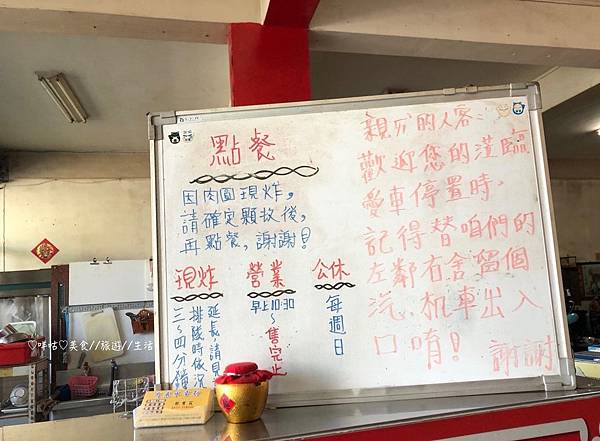 點餐
因肉圓現炸，
請確定顆數後，
再點餐，謝謝！
現炸
三～四分鐘
排隊時依況
延長，請見
營業
早上10:30
～售完止
公休
每週日
親ㄉ的人客：
歡迎您的蒞臨
愛車停置時，
記得替咱們的
左鄰右舍留個
汽、机車出入
口唷！謝謝
♡咩咕♡美食//旅遊//生活